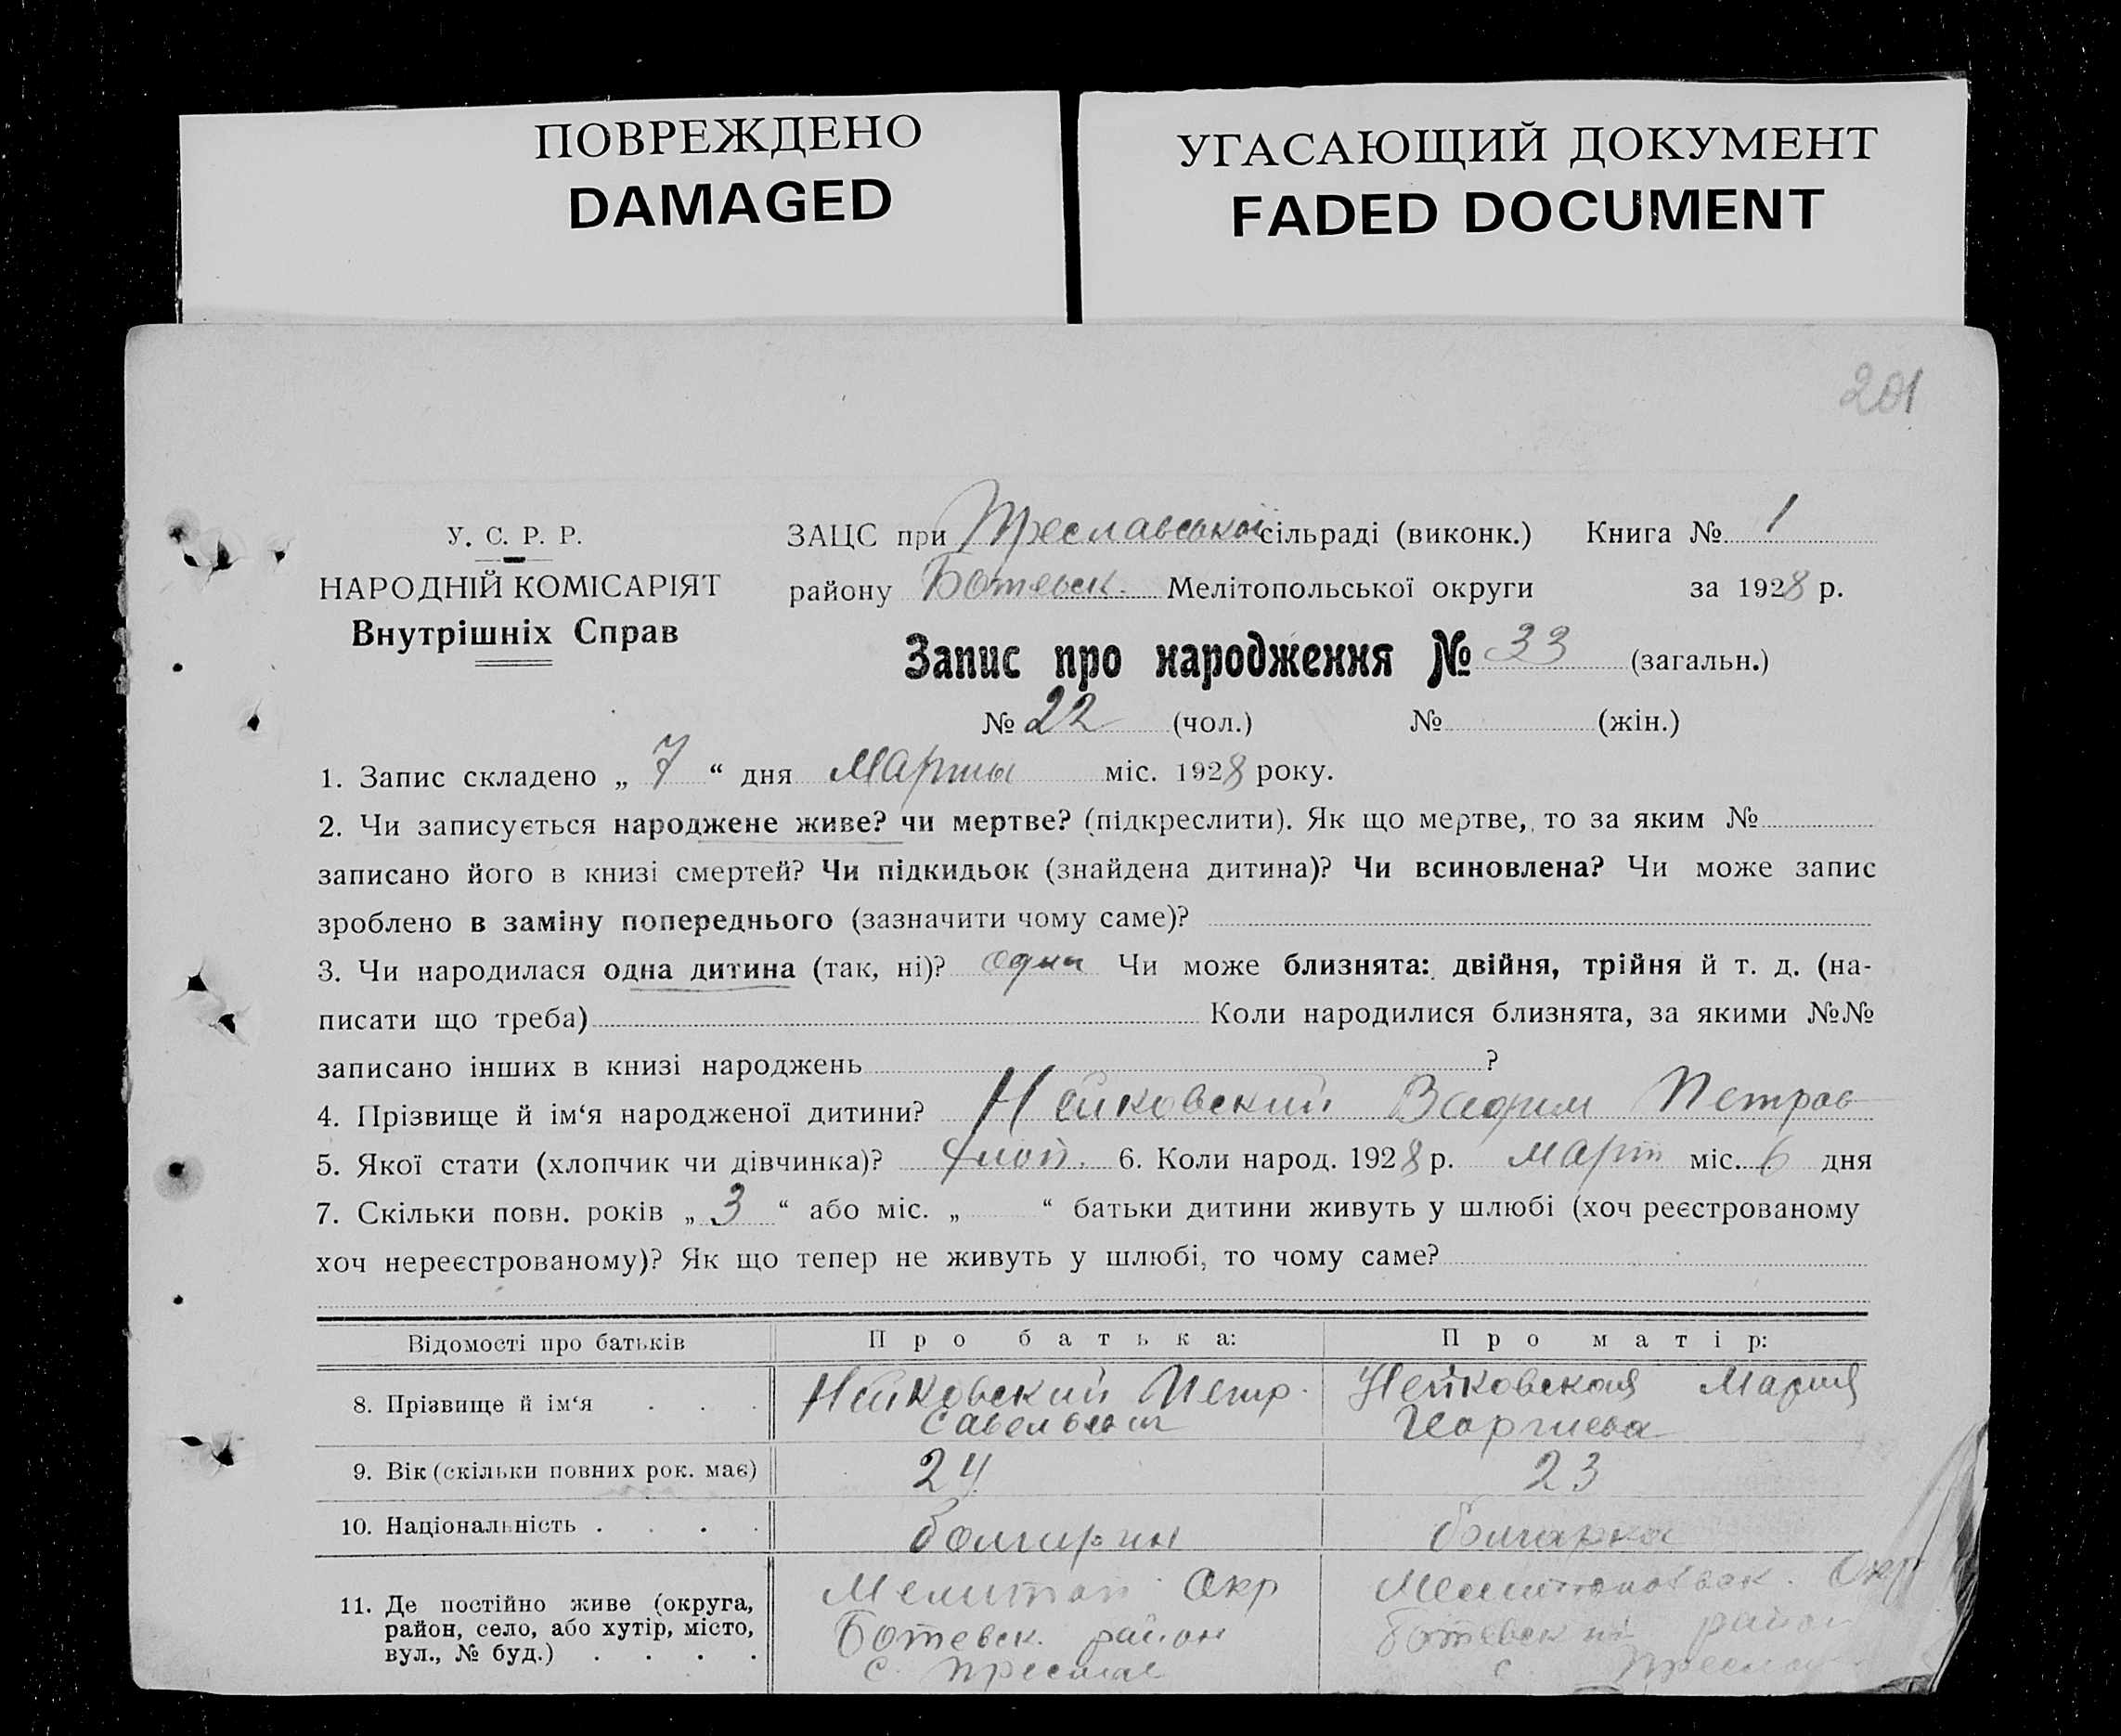 ПОВРЕЖДЕНО
DAMAGED
УГАСАЮЩИЙ ДОКУМЕНТ
FADED DOCUMENT
201
У. С. Р. Р.
НАРОДНІЙ КОМІСАРІЯТ
Внутрішніх Справ
ЗАЦС при Преславської сільраді (виконк.) Книга № 1
району Ботевск. Мелітопольської округи за 1928 р.
Запис про народження № 33 (загальн.)
№ 22 (чол.) № (жін.)
1. Запис складено „ 7 “ дня Марта міс. 1928 року.
2. Чи записується народжене живе? чи мертве? (підкреслити). Як що мертве, то за яким №
записано його в книзі смертей? Чи підкидьок (знайдена дитина)? Чи всиновлена? Чи може запис
зроблено в заміну попереднього (зазначити чому саме)?
3. Чи народилася одна дитина (так, ні)? одна Чи може близнята: двійня, трійня й т. д. (на-
писати що треба) Коли народилися близнята, за якими №№
записано інших в книзі народжень ?
4. Прізвище й ім‘я народженої дитини? Нейковский Вадим Петров
5. Якої стати (хлопчик чи дівчинка)? 6. Коли народ. 1928 р. март міс. 6 дня
7. Скільки повн. років „ 3 “ або міс. „ “ батьки дитини живуть у шлюбі (хоч реєстрованому
хоч нереєстрованому)? Як що тепер не живуть у шлюбі, то чому саме?
Відомості про батьків Про батька: Про матір:
8. Прізвище й ім‘я . . . Нейковский Петр. Нейковская Мария
Савельевич Георгиева
9. Вік (скільки повних рок. має) 24 23
10. Національність . . . . болгарин болгарка
11. Де постійно живе (округа, Мелитоп. Окр Мелитопольск. Окр
район, село, або хутір, місто, Ботевск. район Ботевский район
вул., № буд.) . . . . с. Преслав с Преслав